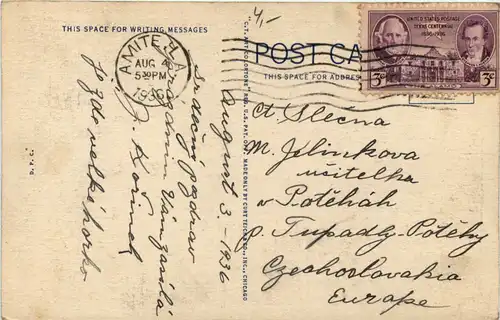 THIS SPACE FOR WRITING MESSAGES
4,-
AMITE, LA.
AUG 4
5 30 PM
1936
POST CA
THIS SPACE FOR ADDRESS
UNITED STATES POSTAGE
TEXAS CENTENNIAL
1836-1936
3¢
3¢
August 3. - 1936
Srdečný pozdrav
z prázdnin Vám zasílá
J. Kořínek
Je zde velké horko
"C.T. ART-COLORTONE" REG. U.S. PAT. OFF. MADE ONLY BY CURT TEICH & CO., INC., CHICAGO
D. P. C.
Ct. Slečna
M. Jelinkova
učitelka
v Potěhách
p. Tupadly-Potěhy
Czechoslovakia
Europe